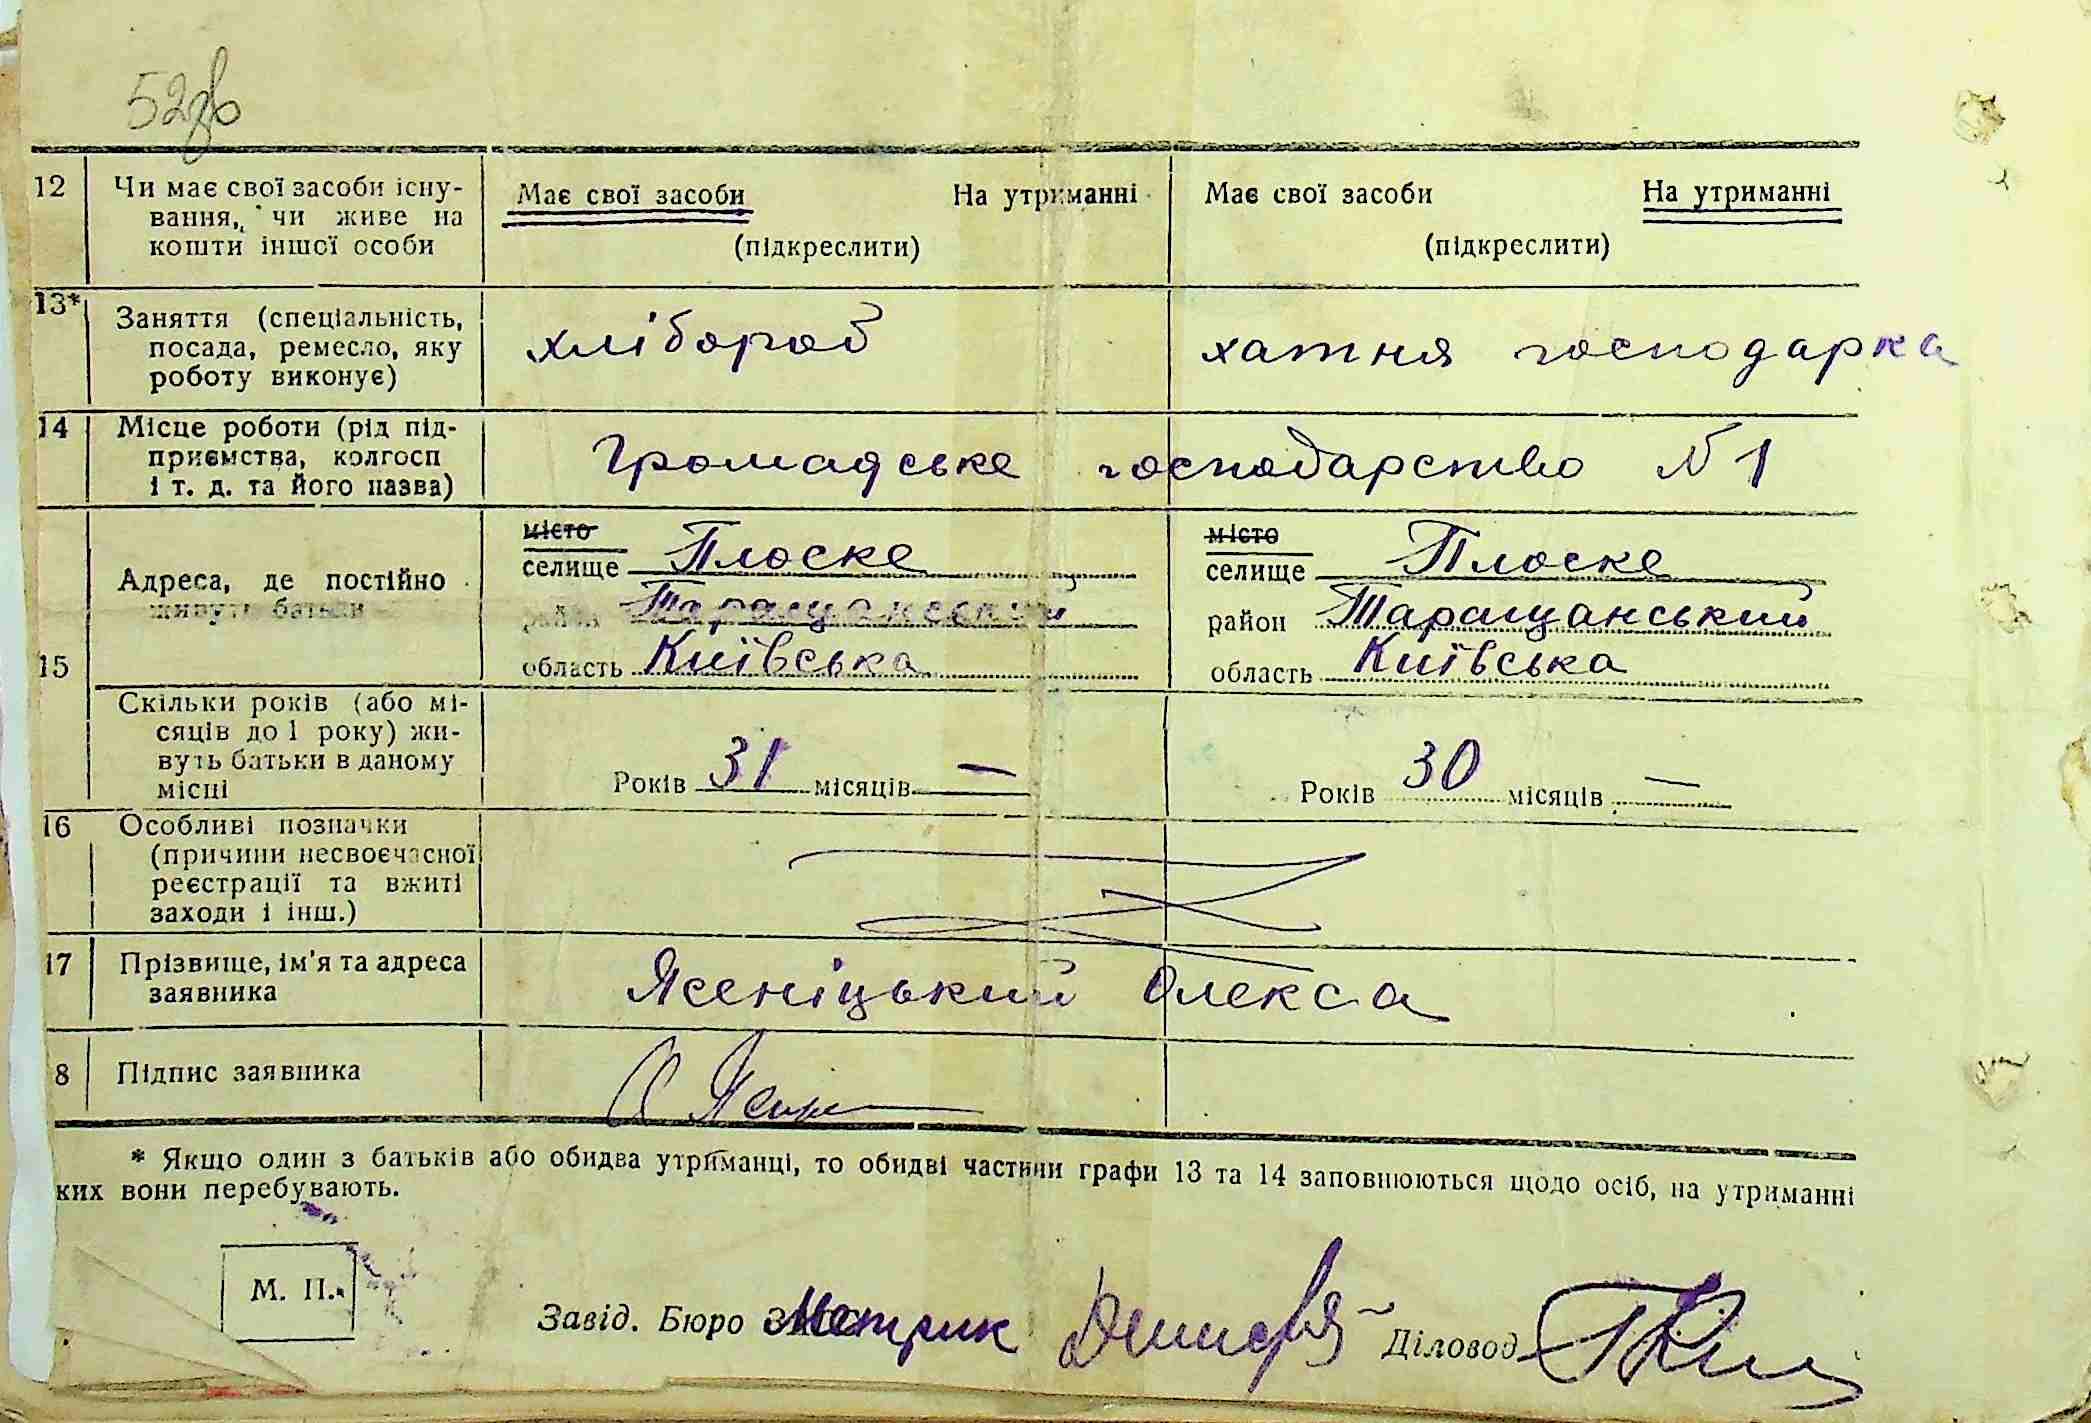 52зв
12 Чи має свої засоби існу-
вання, чи живе на
кошти іншої особи
Має свої засоби На утриманні
(підкреслити)
Має свої засоби На утриманні
(підкреслити)
13* Заняття (спеціальність,
посада, ремесло, яку
роботу виконує)
хлібороб
хатня господарка
14 Місце роботи (рід під-
приємства, колгосп
і т. д. та його назва)
Громадське господарство № 1
15 Адреса, де постійно
живуть батьки
місто
селище Плоске
район Таращанський
область Київська
місто
селище Плоске
район Таращанський
область Київська
Скільки років (або мі-
сяців до 1 року) жи-
вуть батьки в даному
місці
Років 31 місяців —
Років 30 місяців —
16 Особливі позначки
(причини несвоєчасної
реєстрації та вжиті
заходи і інш.)
17 Прізвище, ім'я та адреса
заявника
Ясеніцький Олекса
8 Підпис заявника
* Якщо один з батьків або обидва утриманці, то обидві частини графи 13 та 14 заповнюються щодо осіб, на утриманні
ких вони перебувають.
М. П.
Завід. Бюро Метрик Діловод